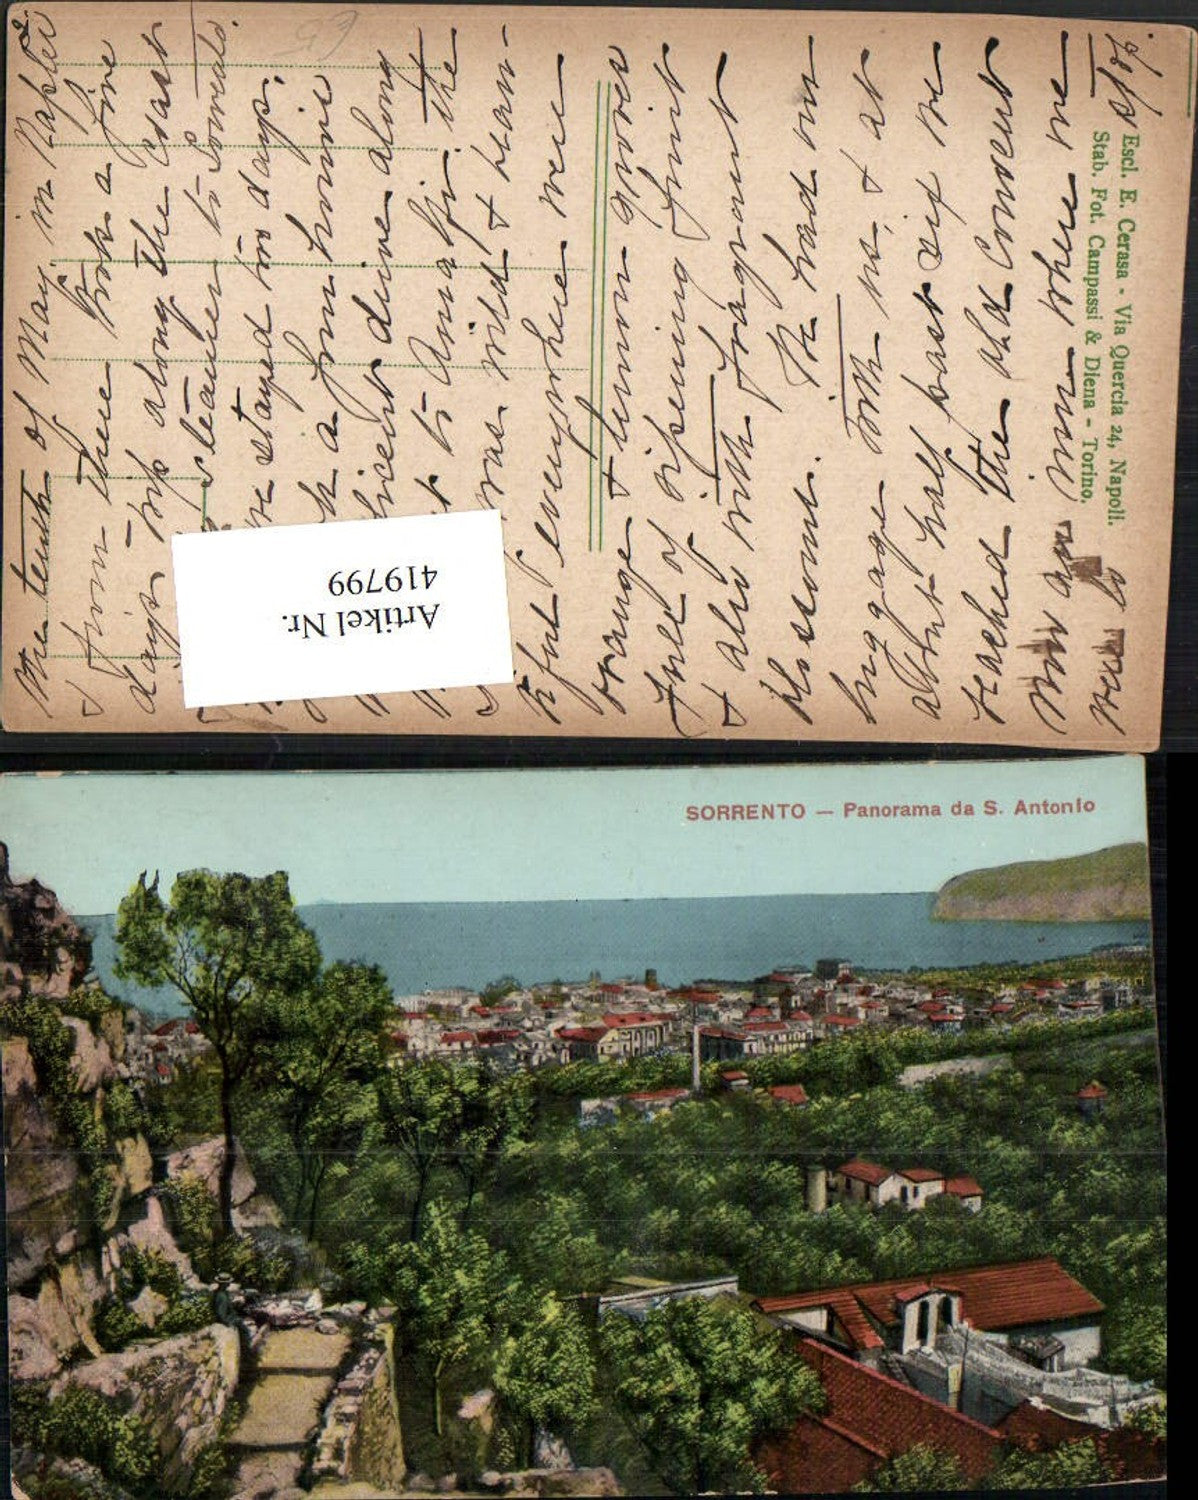 nineteenth of May in Naples
& from there took a fine
days trip along the coast
steamer to Sorrento.
we stayed two days,
a four horse
drive along
to Amalfi. the
was wild & beau-
tiful everywhere were
orange & lemon groves
full of ripening fruit
& also with fragrant
blossoms. We had our
luggage with us, & at
about half past six we
reached the old Convent
now an inn where we
were to stop.
Escl. E. Cerasa - Via Quercia 24, Napoli.
Stab. Fot. Campassi & Diena - Torino.
Artikel Nr.
419799
SORRENTO — Panorama da S. Antonio